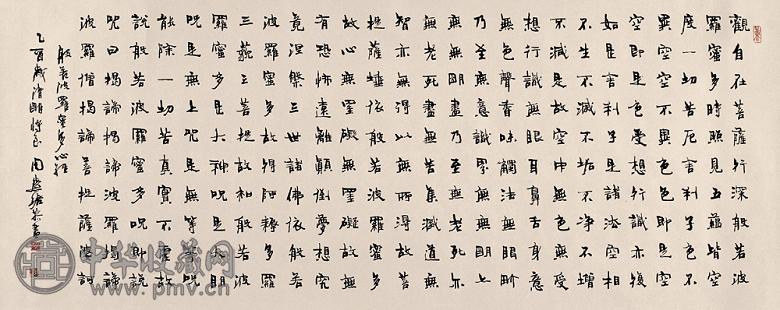 觀自在菩薩行深般若波
羅蜜多時照見五蘊皆空
度一切苦厄舍利子色不
異空空不異色色即是空
空即是色受想行識亦復
如是舍利子是諸法空相
不生不滅不垢不淨不增
不減是故空中無色無受
想行識無眼耳鼻舌身意
無色聲香味觸法無眼界
乃至無意識界無無明亦
無無明盡乃至無老死亦
無老死盡無苦集滅道無
智亦無得以無所得故菩
提薩埵依般若波羅蜜多
故心無罣礙無罣礙故無
有恐怖遠離顛倒夢想究
竟涅槃三世諸佛依般若
波羅蜜多故得阿耨多羅
三藐三菩提故知般若波
羅蜜多是大神呪是大明
呪是無上呪是無等等呪
能除一切苦真實不虛故
說般若波羅蜜多呪即說
呪曰揭諦揭諦波羅揭諦
波羅僧揭諦菩提薩婆訶
般若波羅蜜多心經
乙酉歲清明
中华收藏网
www.pmv.cn